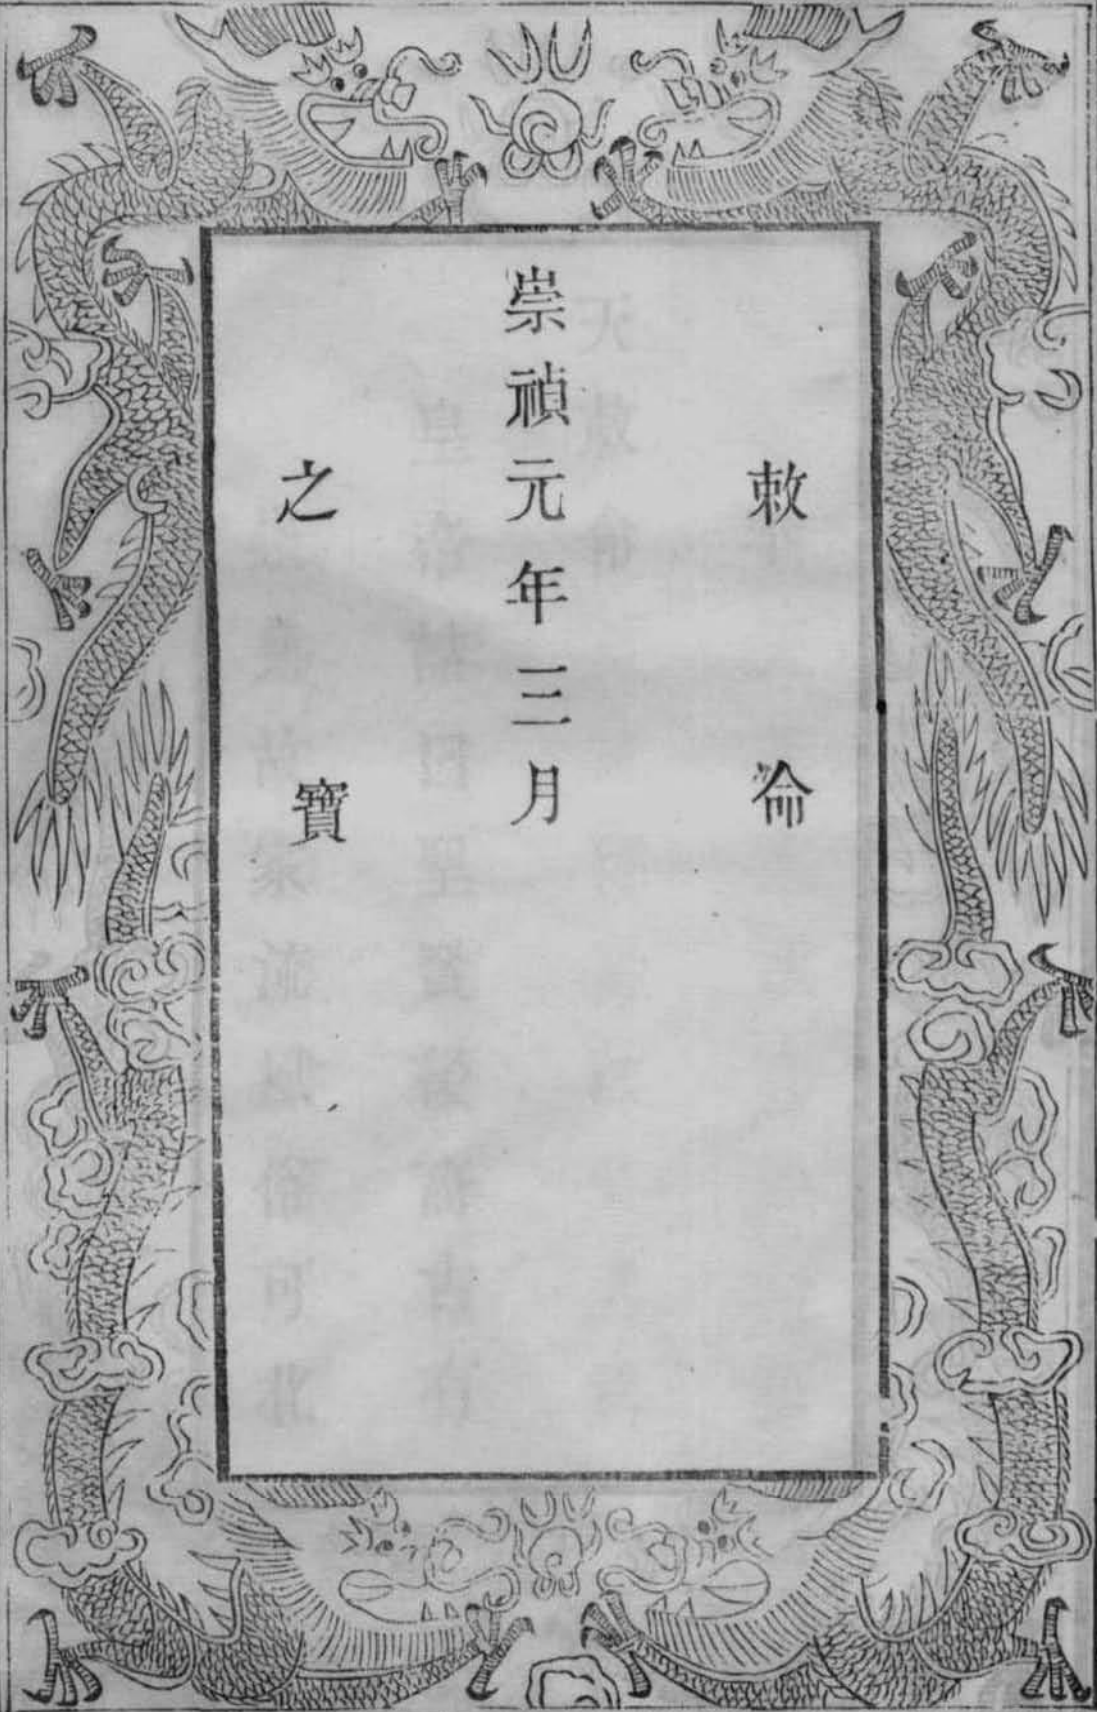 敕命
崇禎元年三月
之寶